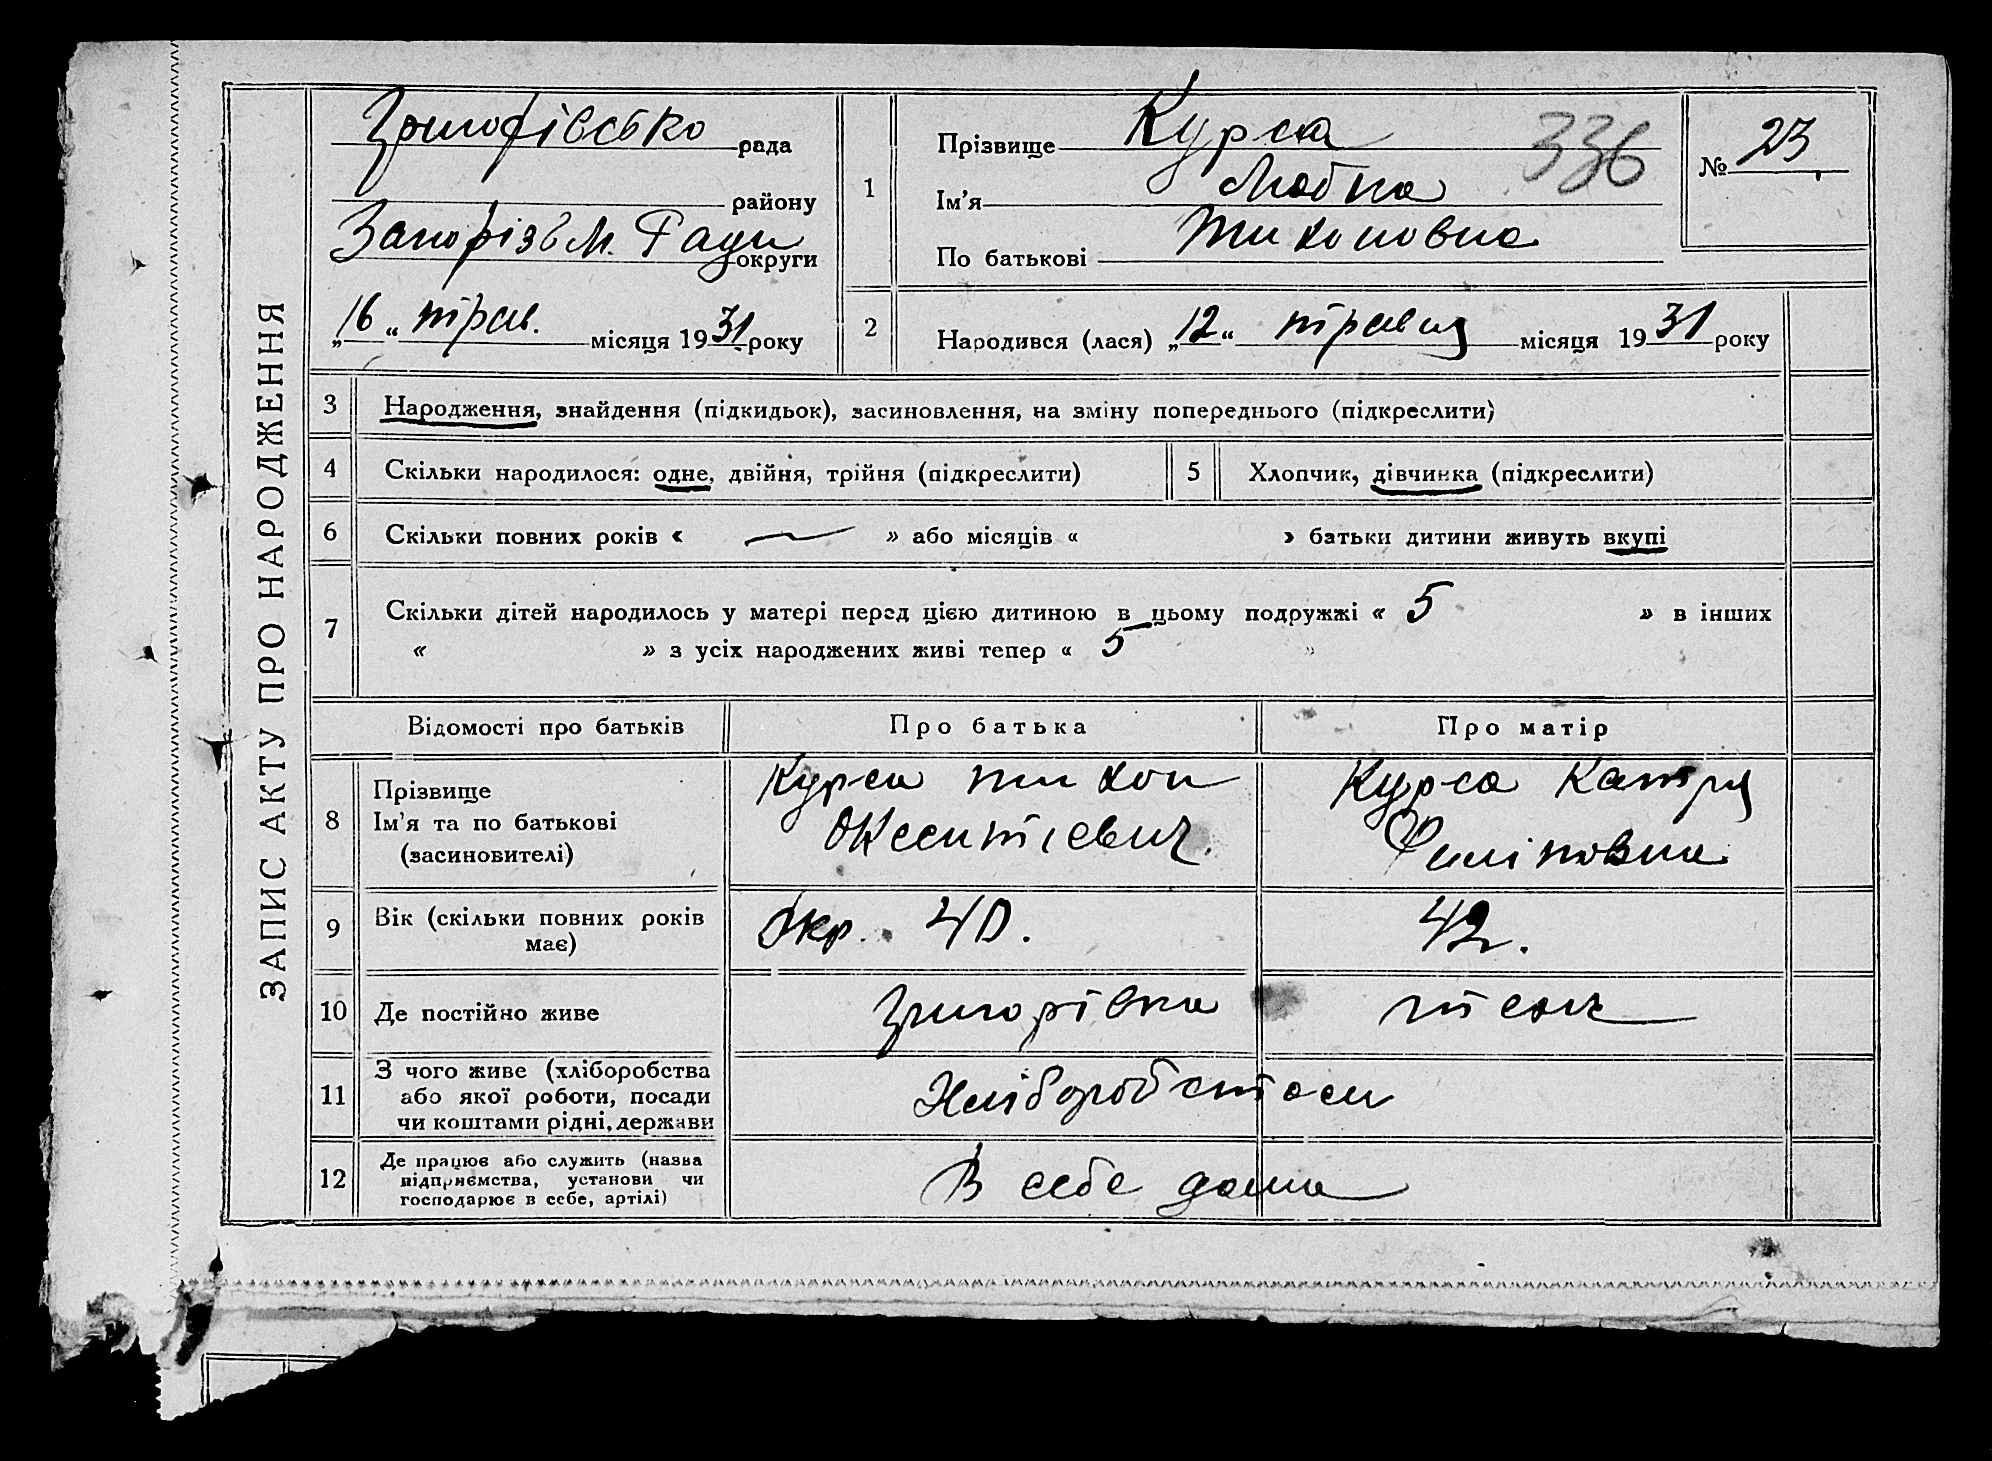 ЗАПИС АКТУ ПРО НАРОДЖЕННЯ
Григорівсько рада
району
Запорізьк М. Ради округи
„16“ трав. місяця 1931 року
1
Прізвище Курса
Ім'я Любка
По батькові Тихоновна
336
№ 23
2
Народився (лася) „12“ травня місяця 1931 року
3 Народження, знайдення (підкидьок), засиновлення, на зміну попереднього (підкреслити)
4 Скільки народилося: одне, двійня, трійня (підкреслити)
5 Хлопчик, дівчинка (підкреслити)
6 Скільки повних років « — » або місяців « » батьки дитини живуть вкупі
7 Скільки дітей народилось у матері перед цією дитиною в цьому подружжі « 5 » в інших
« » з усіх народжених живі тепер « 5 »
Відомості про батьків Про батька Про матір
8 Прізвище
Ім'я та по батькові
(засиновителі)
Курса Тихон
Курса Катря
Филіповна
9 Вік (скільки повних років
має)
Укр. 40.
42.
10 Де постійно живе
Григорівка
тісаж
11 З чого живе (хліборобства
або якої роботи, посади
чи коштами рідні, держави
Хліборобством
12 Де працює або служить (назва
підприємства, установи чи
господарює в себе, артілі)
В себе дома